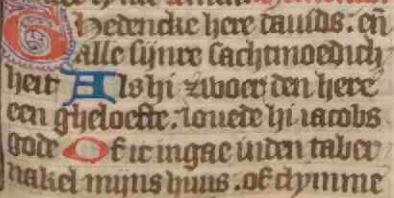 Ghedencke here dauids: en̄
alle sijnre sachtmoedich
heit Als hi zwoer den here
een gheloefte. louede hi iacobs
gode Of ic ingae inden taber
nakel mijns huus. of clymme